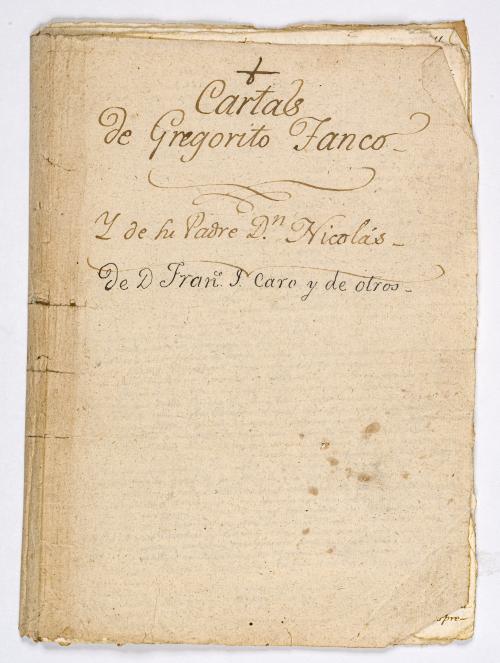 Cartas
de Gregorito Tanco
Y de su Padre D.n Nicolás
de D Fran.o J. Caro y de otros
spre